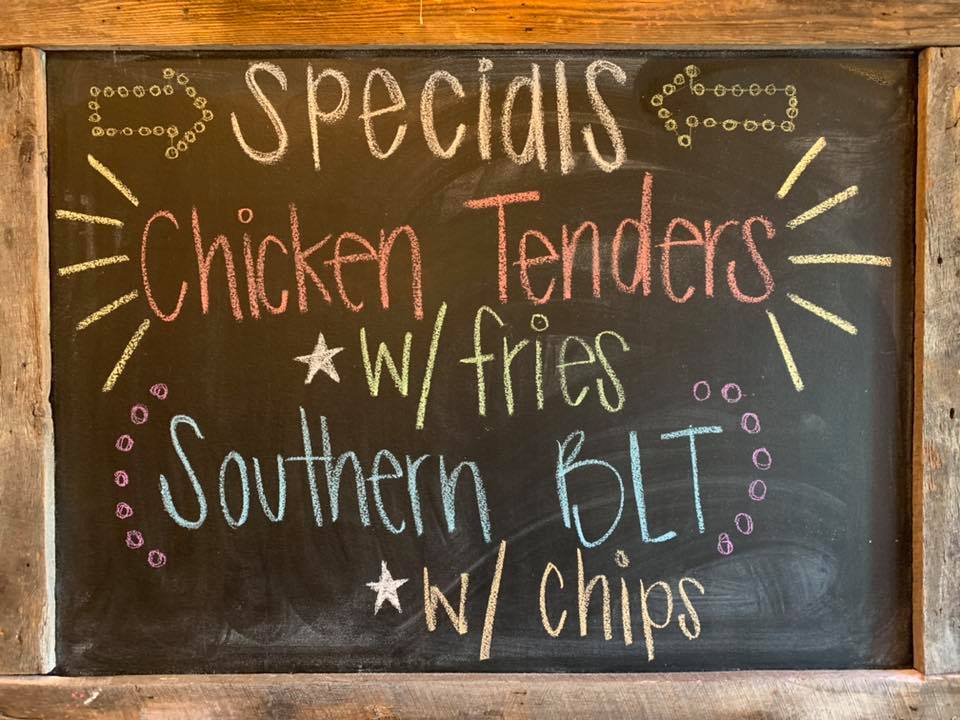 Specials
Chicken Tenders
w/ fries
Southern BLT
w/ chips